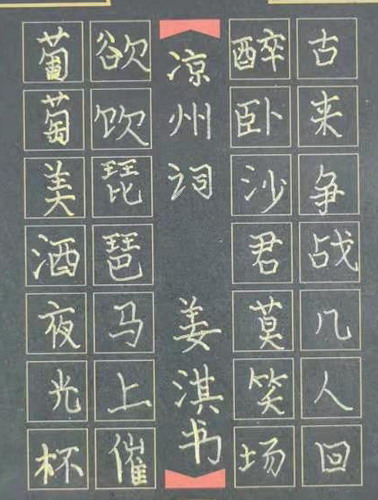 葡萄美酒夜光杯
欲饮琵琶马上催
凉州词 姜淇书
醉卧沙君莫笑场
古来争战几人回